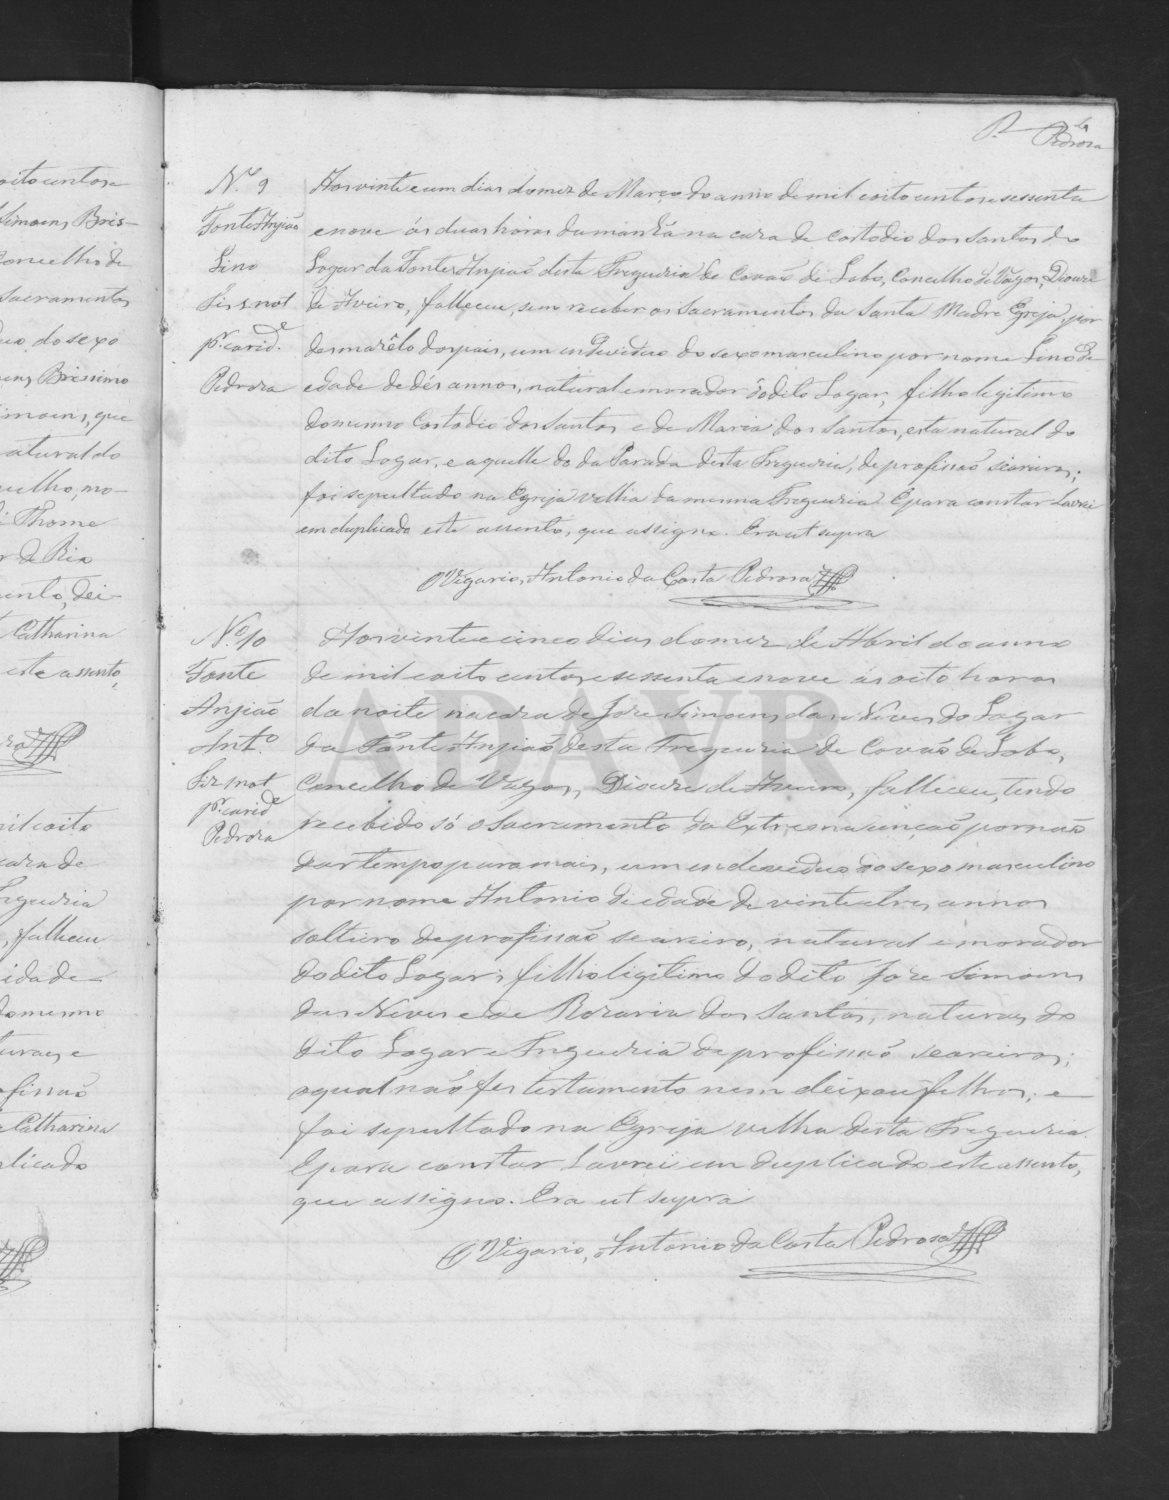 Pedroza
N.º 9
Fonte Anjião
Lino
Fis not
p.r carid.e
Pedroza
Aos vinte e um dias do mez de Março do anno de mil oito centos e sessenta
e nove ás duas hóras da manhã na caza de Costodio dos Santos do
Logar da Fonte Anjiaõ desta Freguezia de Covaõ de Lobo, Concelho de Vagos, Diouze
de Aveiro, falleceu, sem receber os Sacramentos da Santa Madre Egreja, por
desmazêlo dos pais, um individuo do sexo masculino por nome Lino de
edade de dés annos, natural e morador no dito Logar, filho legitimo
do mesmo Costodio dos Santos e de Maria dos Santos, esta natural do
dito Logar, e aquelle do da Parada desta Freguezia, de profissaõ seareiros;
foi sepultado na Egreja velha da mesma Freguezia. E para constar lavrei
em duplicado este assento, que assigno. Era ut supra
O Vigario, Antonio da Costa Pedroza
N.º 10
Fonte
Anjiaõ
Ant.º
Fiz not
p.r carid.e
Pedroza
Aos vinte e cinco dias do mez de Abril do anno
de mil oito centos e sessenta e nove ás oito horas
da noite na caza de Joze Simoens das Neves do Logar
da Fonte Anjiaõ desta Freguezia de Covaõ de Lobo,
Concelho de Vagos, Diouze de Aveiro, falleceu, tendo
recebido só o Sacramento da Extrema unçaõ por naõ
dar tempo para mais, um endeveduo do sexo masculino
por nome Antonio de edade de vinte e tres annos
solteiro de profissaõ seareiro, natural e morador
do dito Logar; filho legitimo do dito Joze Simoens
das Neves e de Rozaria dos Santos, naturaes do
dito Logar e Freguezia de profissaõ seareiros;
o qual naõ fes testamento nem deixou filhos; e
foi sepultado na Egreja velha desta Freguezia.
E para constar lavrei em duplicado este assento,
que assigno. Era ut supra
O Vigario, Antonio da Costa Pedroza
ADAVR